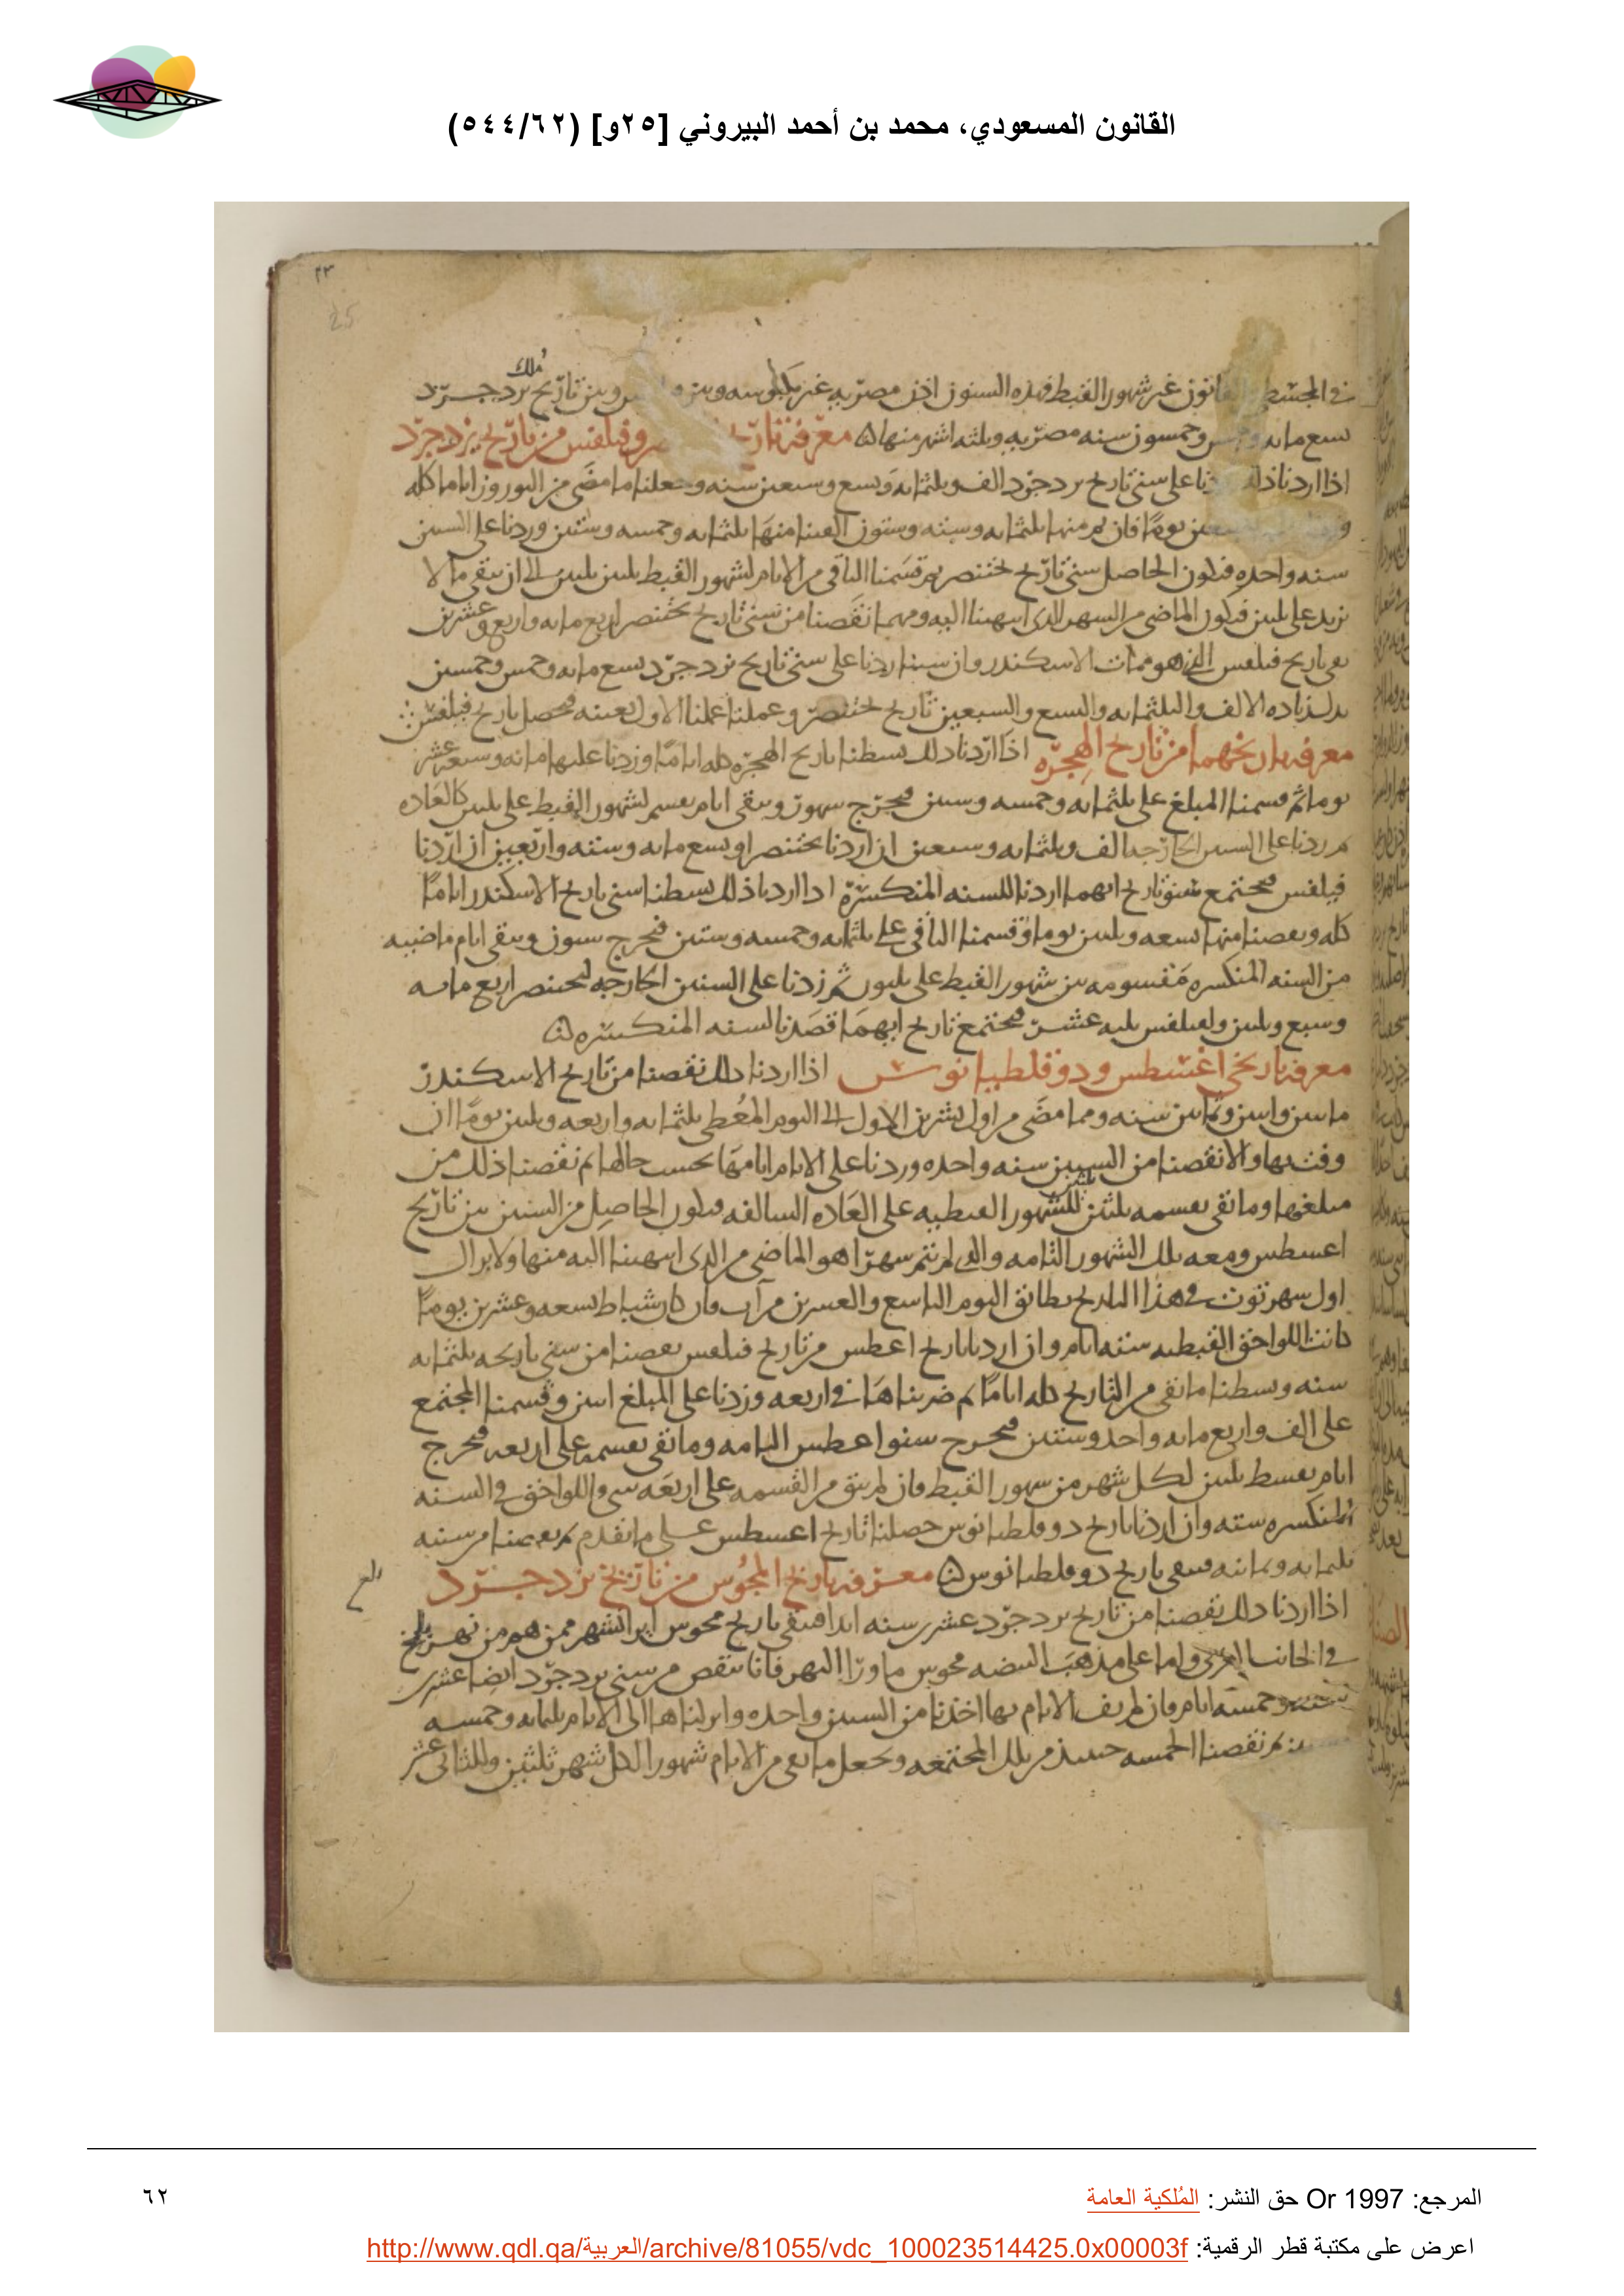 القانون المسعودي، محمد بن أحمد البيروني [٢٥و] (٥٤٤/٦٢)
٢٣
25
ملك
في المجسطي غير شهور القبط فهذه السنون اذن مصريه غير وبين تاريخ يزدجرد
سبع مايه وخمسون سنه مصريه وثلثه اشهر منها معرفة وفيلفس من تاريخ يزدجرد
اذا اردنا ذلك زدنا على سني تاريخ يزدجرد الف وثلثمايه وتسع وسبعين سنه وجعلنا ما مضى من النوروز اياما كله
يوما فان تم منها ثلثمايه وسته وستون القينا منها ثلثمايه وخمسه وستين وزدنا على السنين
سنه واحده فيكون الحاصل سني تاريخ بختنصر ثم قسمنا الباقي من الايام لشهور القبط ثلثين ثلثين الى ان يبقى ما لا
يزيد على ثلثين فيكون الماضي من الشهر الذي انتهينا اليه ومهما نقصنا من سني تاريخ بختنصر اربع مايه واربع وعشرين
بقي تاريخ فيلفس الذي هو ممات الاسكندر وان شينا زدنا على سني تاريخ يزدجرد تسع مايه وخمس وخمسين
بدل زياده الالف والثلثمايه والتسع والسبعين تاريخ بختنصر وعملنا عملنا الاول بعينه فيحصل تاريخ فيلفس
معرفة تاريخهما من تاريخ الهجره اذا اردنا ذلك بسطنا تاريخ الهجره كله اياما وزدنا عليها مايه وسبعه عشر
يوما ثم قسمنا المبلغ على ثلثمايه وخمسه وستين فيخرج سنون ويبقى ايام يقسم لشهور القبط على ثلثين كالعاده
ثم زدنا على السنين الخارجه الف وثلثمايه وسبعين ان اردنا بختنصر او تسع مايه وسته واربعين ان اردنا
فيلفس فيجتمع سنو تاريخ ايهما اردنا للسنه المنكسره اذا اردنا ذلك بسطنا سني تاريخ الاسكندر اياما
كله ونقصنا منها تسعه وثلثين يوما وقسمنا الباقي على ثلثمايه وخمسه وستين فيخرج سنون ويبقى ايام ماضيه
من السنه المنكسره مقسومه بين شهور القبط على ثلثين ثم زدنا على السنين الخارجه لبختنصر اربع مايه
وسبع وثلثين ولفيلفس ثلثه عشر فيجتمع تاريخ ايهما قصدنا لسنه المنكسره
معرفة تاريخي اغسطس ودوقلطيانوس اذا اردنا ذلك نقصنا من تاريخ الاسكندر
مايتين واثنين وثمانين سنه ومما مضى من اول تشرين الاول الى اليوم المعطى ثلثمايه واربعه وثلثين يوما ان
وفت بها والا نقصنا من السنين سنه واحده وزدنا على الايام ايامها بحسب حالها ثم نقصنا ذلك من
مبلغها وما بقي يقسمه ثلثين للشهور القبطيه على العاده السالفه فيكون الحاصل من السنين بين تاريخ
اغسطس ومعه تلك الشهور التامه والتي لم تتم شهرا هو الماضي من الذي انتهينا اليه منها ولا يزال
اول شهر توت في هذا التاريخ يطابق اليوم التاسع والعشرين من آب وان كان شباط تسعه وعشرين يوما
كانت اللواحق القبطيه سته ايام وان اردنا تاريخ اغسطس من تاريخ فيلفس نقصنا من سني تاريخه ثلثمايه
سنه وبسطنا ما بقي من التاريخ كله اياما ثم ضربناها في اربعه وزدنا على المبلغ اثنين وقسمنا المجتمع
على الف واربع مايه واحد وستين فيخرج سنو اغسطس التامه وما بقي يقسمه على اربعه فيخرج
ايام يقسط ثلثين لكل شهر من شهور القبط فان لم يبق من القسمه على اربعه شي واللواحق في السنه
المنكسره سته وان اردنا تاريخ دوقلطيانوس حصلنا تاريخ اغسطس على ما تقدم ثم نقصنا من سنيه
ثلثمايه وثمانيه فيبقى تاريخ دوقلطيانوس معرفة تاريخ المجوس من تاريخ يزدجرد
اذا اردنا ذلك نقصنا من تاريخ يزدجرد عشرين سنه ابدا فيبقى تاريخ مجوس ايرانشهر ممن هم من نهر بلخ
في الجانب الغربي واما على مذهب المبيضه مجوس ما ورا النهر فانا ننقص من سني يزدجرد ايضا عشرين
سنه وخمسه ايام فان لم يف الايام بها اخذنا من السنين واحده وانزلناها الى الايام ثلثمايه وخمسه
ثم نقصنا الخمسه حينيذ من تلك المجتمعه ونجعل ما بقي من الايام شهورا لكل شهر ثلثين وللثاني عشر
المرجع: Or 1997 حق النشر: المُلكية العامة
٦٢
اعرض على مكتبة قطر الرقمية: http://www.qdl.qa/العربية/archive/81055/vdc_100023514425.0x00003f